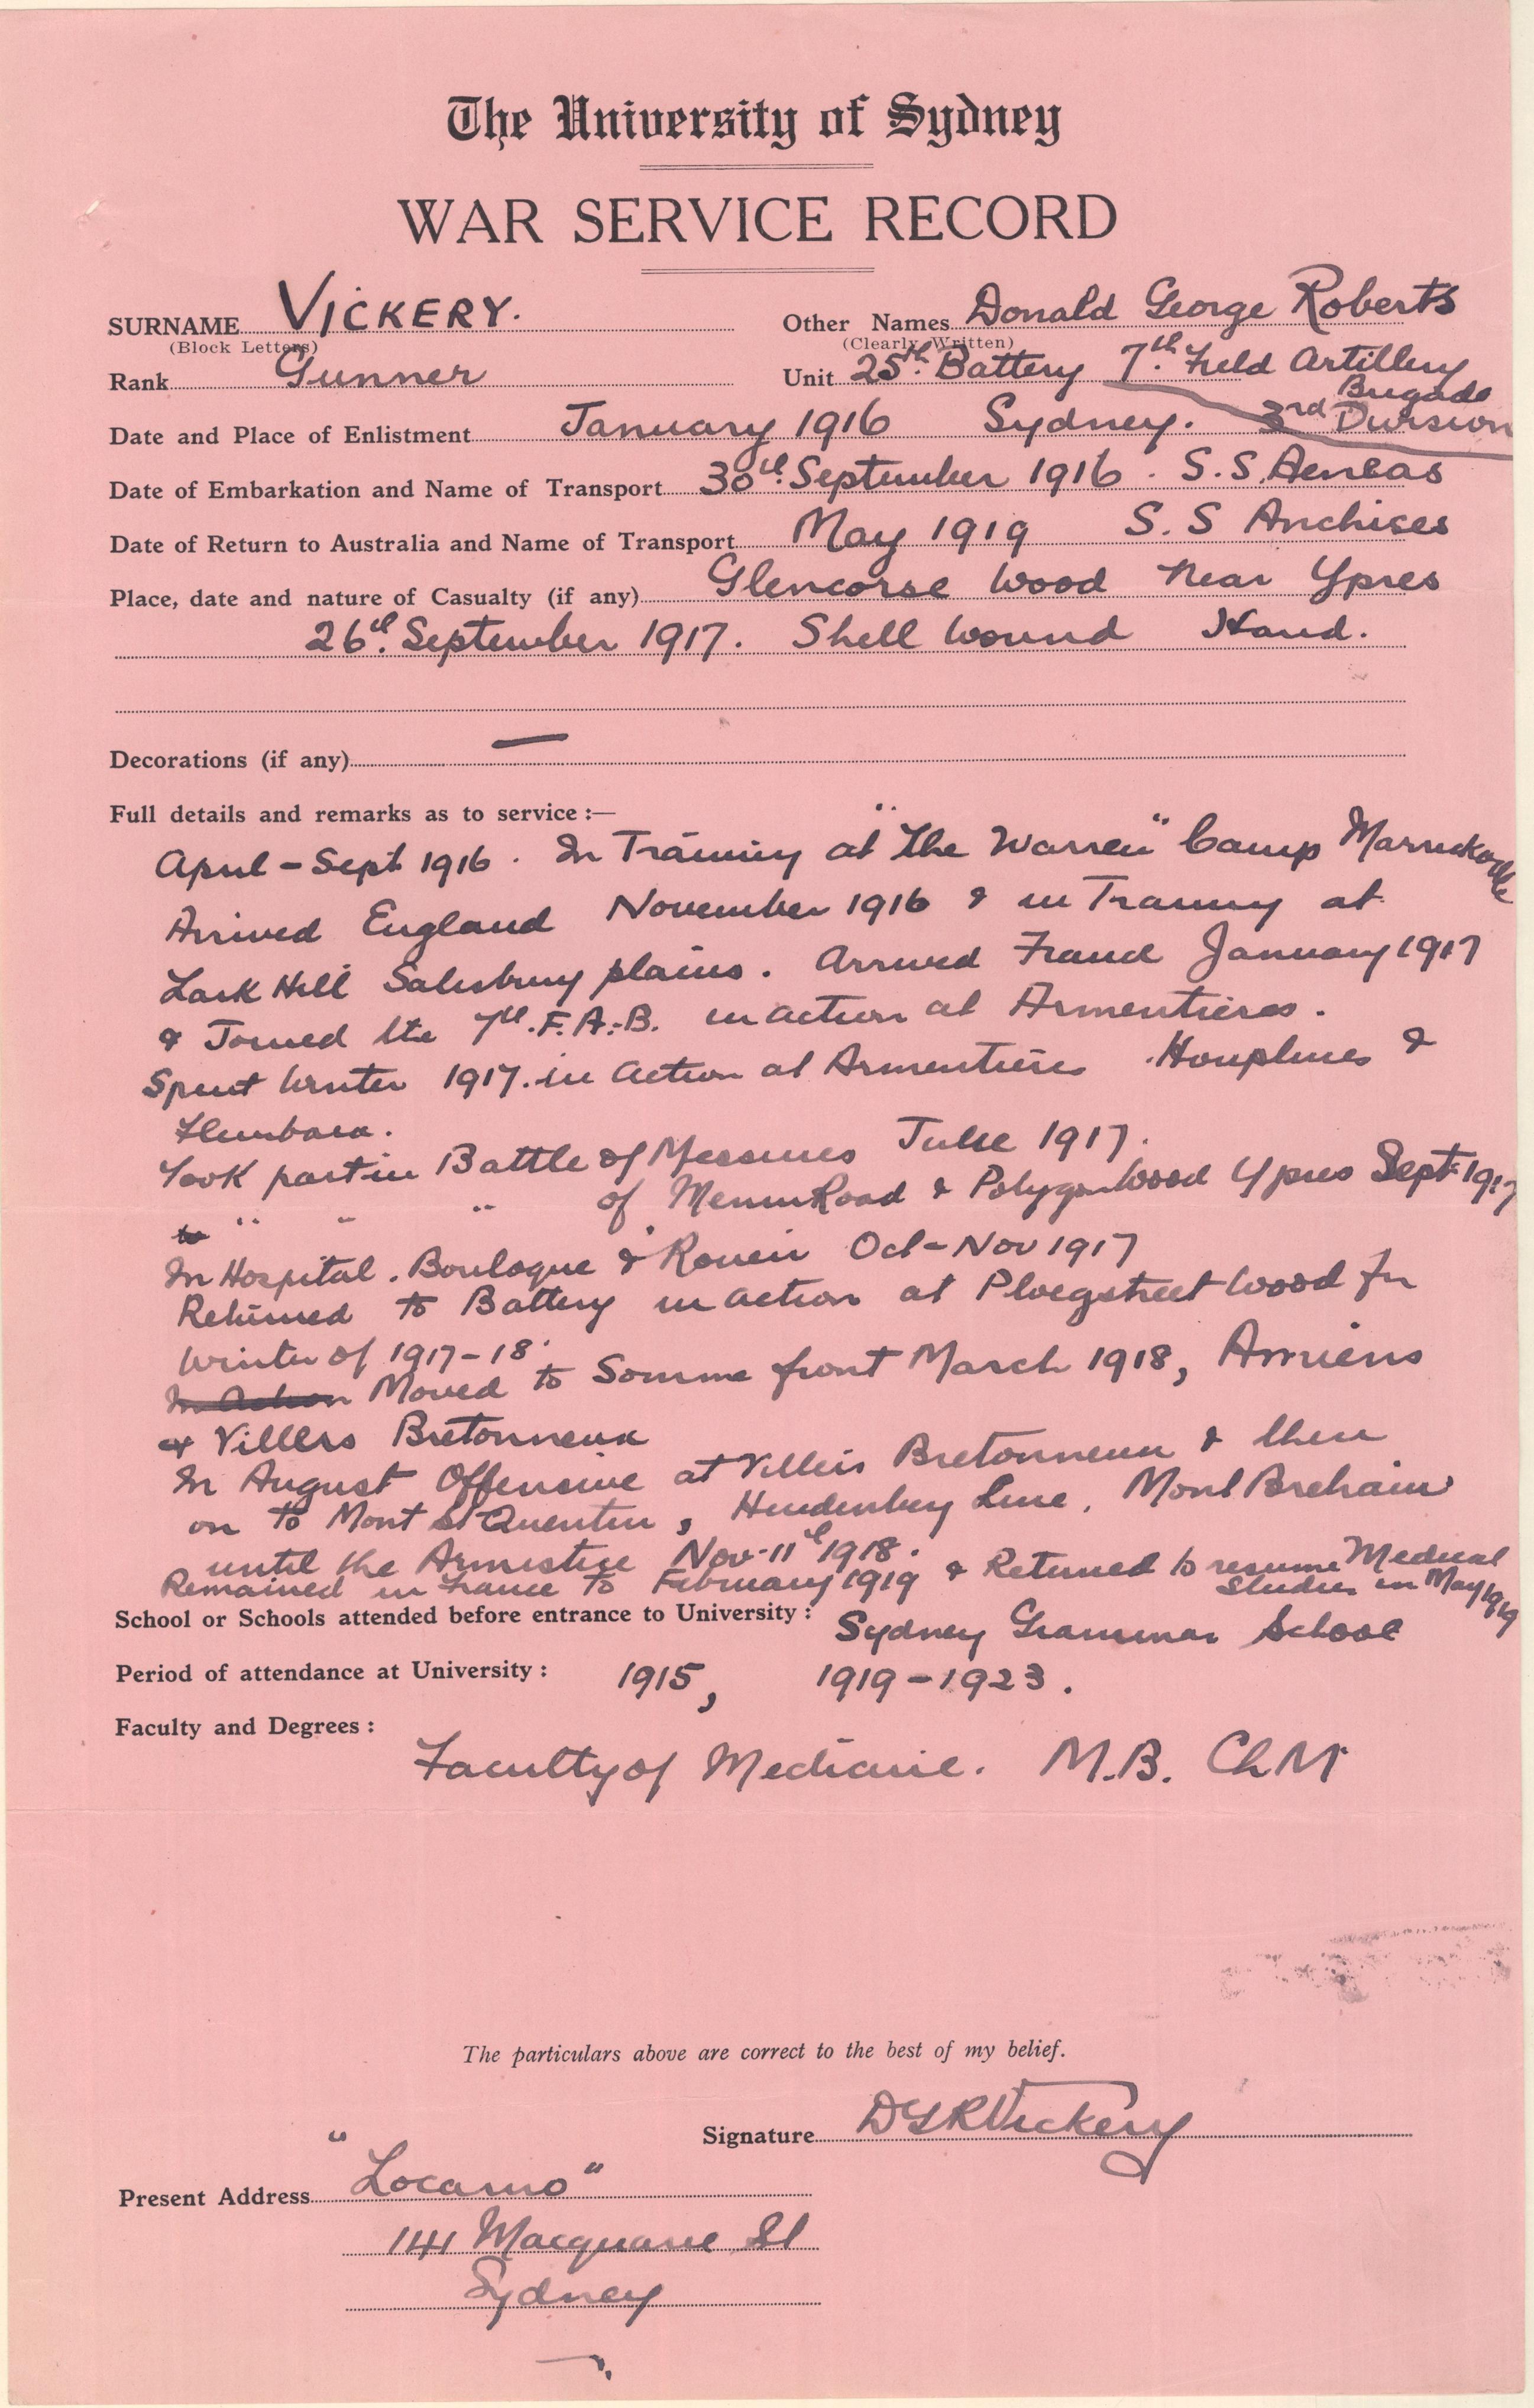 The University of Sydney
WAR SERVICE RECORD
SURNAME VICKERY. Other Names Donald George Roberts
(Block Letters) (Clearly Written)
Rank Gunner Unit 25th Battery 7th Field Artillery
Brigade
Date and Place of Enlistment January 1916 Sydney. 3rd Division
Date of Embarkation and Name of Transport 30th September 1916. S.S. Aeneas
Date of Return to Australia and Name of Transport May 1919 S.S Anchises
Place, date and nature of Casualty (if any) Glencorse Wood Near Ypres
26th September 1917. Shell Wound Hand.
Decorations (if any) —
Full details and remarks as to service :—
April - Sept 1916. In Training at "The Warren" Camp Marrickville
Arrived England November 1916 & in Training at
Lark Hill Salisbury plains. Arrived France January 1917
& Joined the 7th. F.A.B. in action at Armentieres.
Spent Winter 1917. in Action at Armentieres Houplines &
Fleurbaix.
Took part in Battle of Messines June 1917.
" " " of Menin Road & Polygon Wood Ypres Sept. 1917
In Hospital. Boulogne & Rouen Oct - Nov 1917
Returned to Battery in action at Ploegstreet Wood for
Winter of 1917-18.
In Action Moved to Somme front March 1918, Amiens
& Villers Bretonneux
In August Offensive at Villers Bretonneux & then
on to Mont St Quentin, Hindenburg Line, Mont Brehain
until the Armistice Nov. 11th 1918.
Remained in France to February 1919 & Returned to resume Medical
Studies in May 1919
School or Schools attended before entrance to University : Sydney Grammar School
Period of attendance at University : 1915, 1919-1923.
Faculty and Degrees :
Faculty of Medicine. M.B. Ch M
The particulars above are correct to the best of my belief.
Signature DGRVickery
Present Address "Locarno"
141 Macquarie St
Sydney